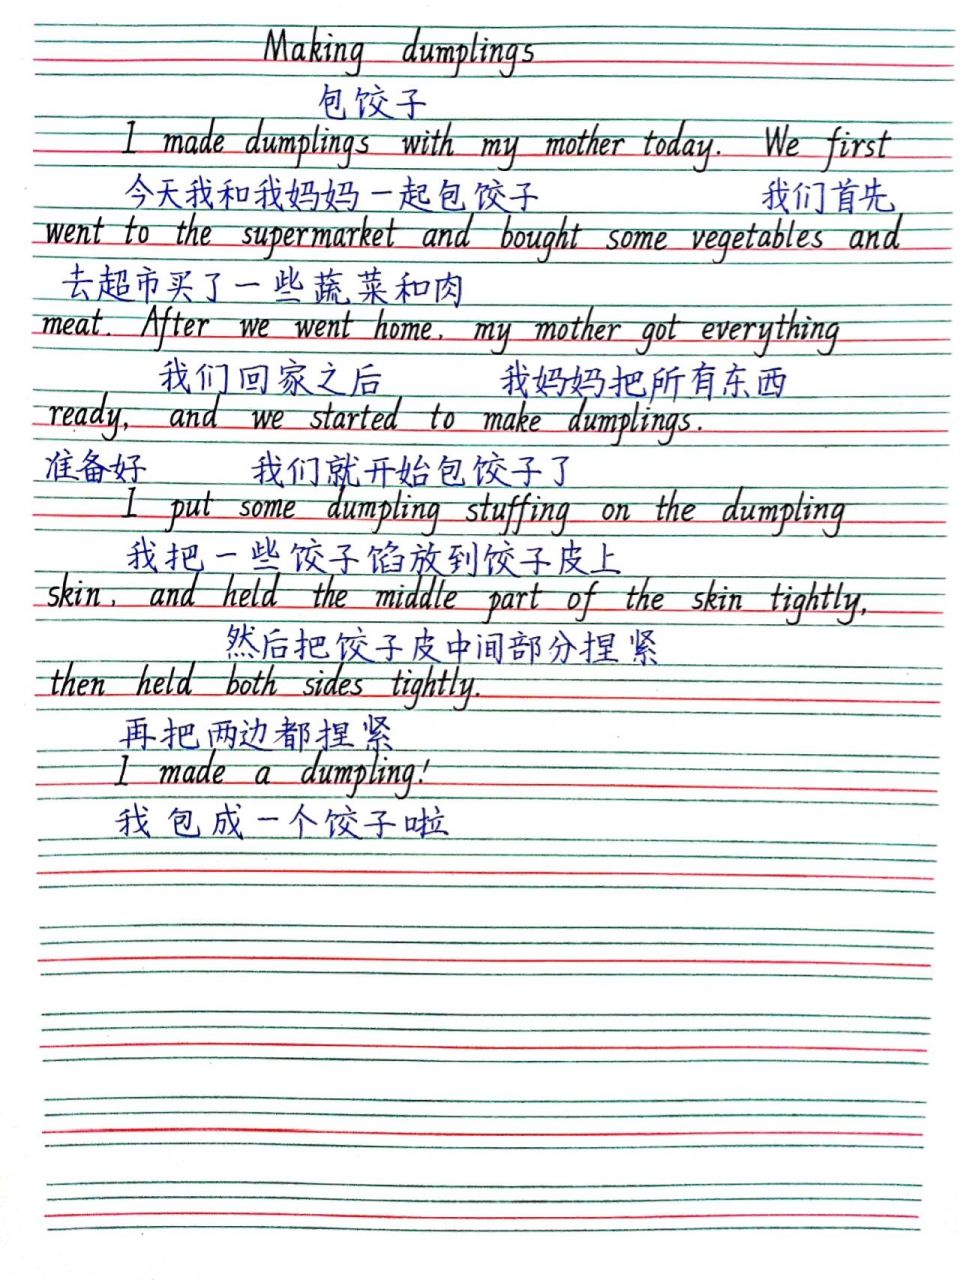 Making dumplings
包饺子
I made dumplings with my mother today. We first
今天我和我妈妈一起包饺子 我们首先
went to the supermarket and bought some vegetables and
去超市买了一些蔬菜和肉
meat. After we went home, my mother got everything
我们回家之后 我妈妈把所有东西
ready, and we started to make dumplings.
准备好 我们就开始包饺子了
I put some dumpling stuffing on the dumpling
我把一些饺子馅放到饺子皮上
skin, and held the middle part of the skin tightly,
然后把饺子皮中间部分捏紧
then held both sides tightly.
再把两边都捏紧
I made a dumpling!
我包成一个饺子啦